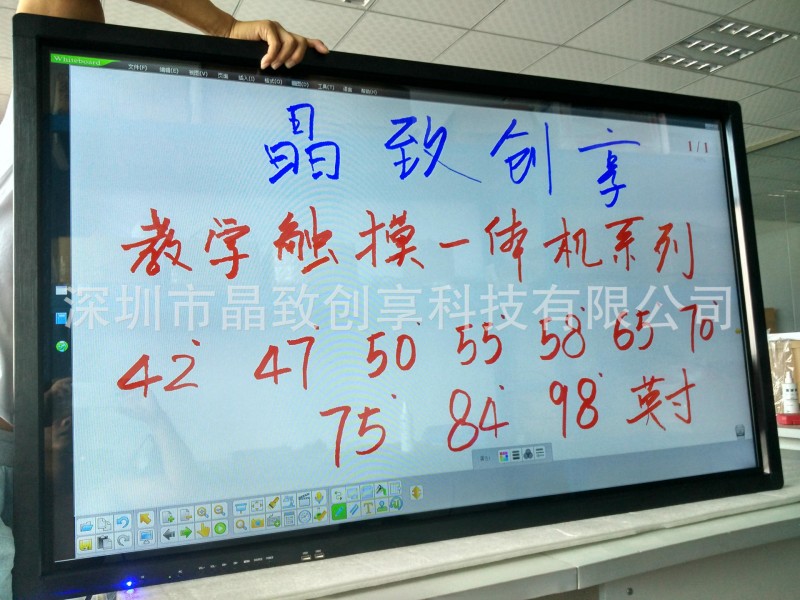 Whiteboard
文件(F) 编辑(E) 视图(V) 页面 插入(I) 格式(O) 绘图(D) 工具(T) 语音 帮助(H)
晶致创享
1/1
教学触摸一体机系列
深圳市晶致创享科技有限公司
42" 47" 50" 55" 58" 65" 70"
75" 84" 98" 英寸